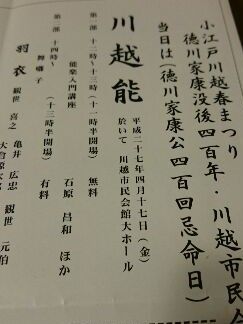 小江戸川越春まつり
徳川家康没後四百年・川越市民会
当日は(徳川家康公四百回忌命日)
川越能
平成二十七年四月十七日(金)
於いて 川越市民会館大ホール
第一部 十二時〜十三時(十一時半開場) 無料
能楽入門講座 石原 昌和 ほか
第二部 十四時〜 (十三時半開場) 有料
舞囃子
羽衣 観世 喜之 亀井 広忠 観世 元伯